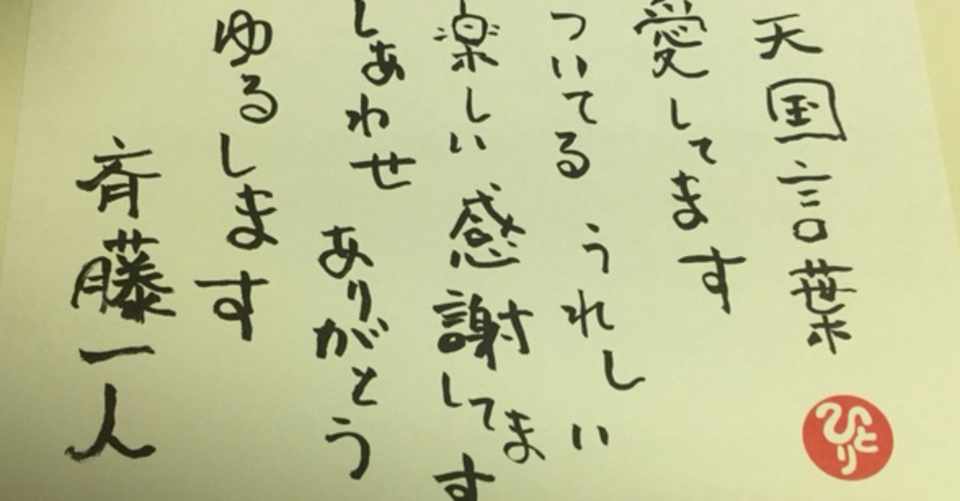 天国言葉
愛してます
ついてる うれしい
楽しい 感謝してます
しあわせ ありがとう
ゆるします
斉藤一人
ひとり